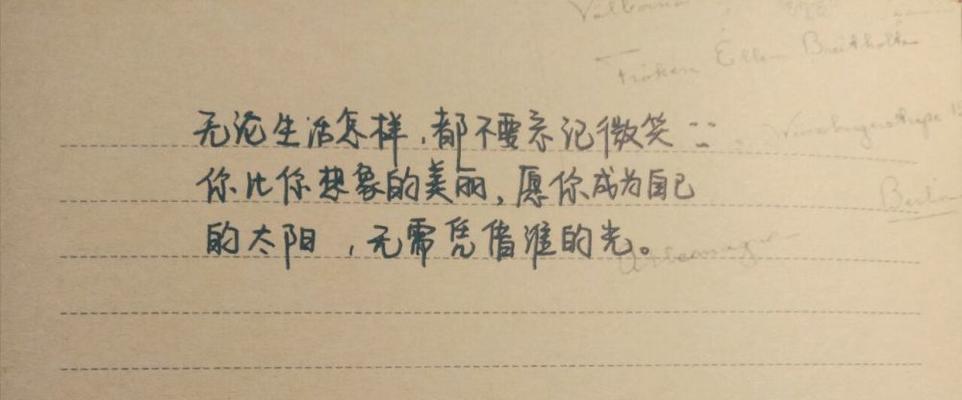 Fröken Ellen
Berlin
无论生活怎样,都不要忘记微笑::
你比你想象的美丽,愿你成为自己
的太阳,无需凭借谁的光。